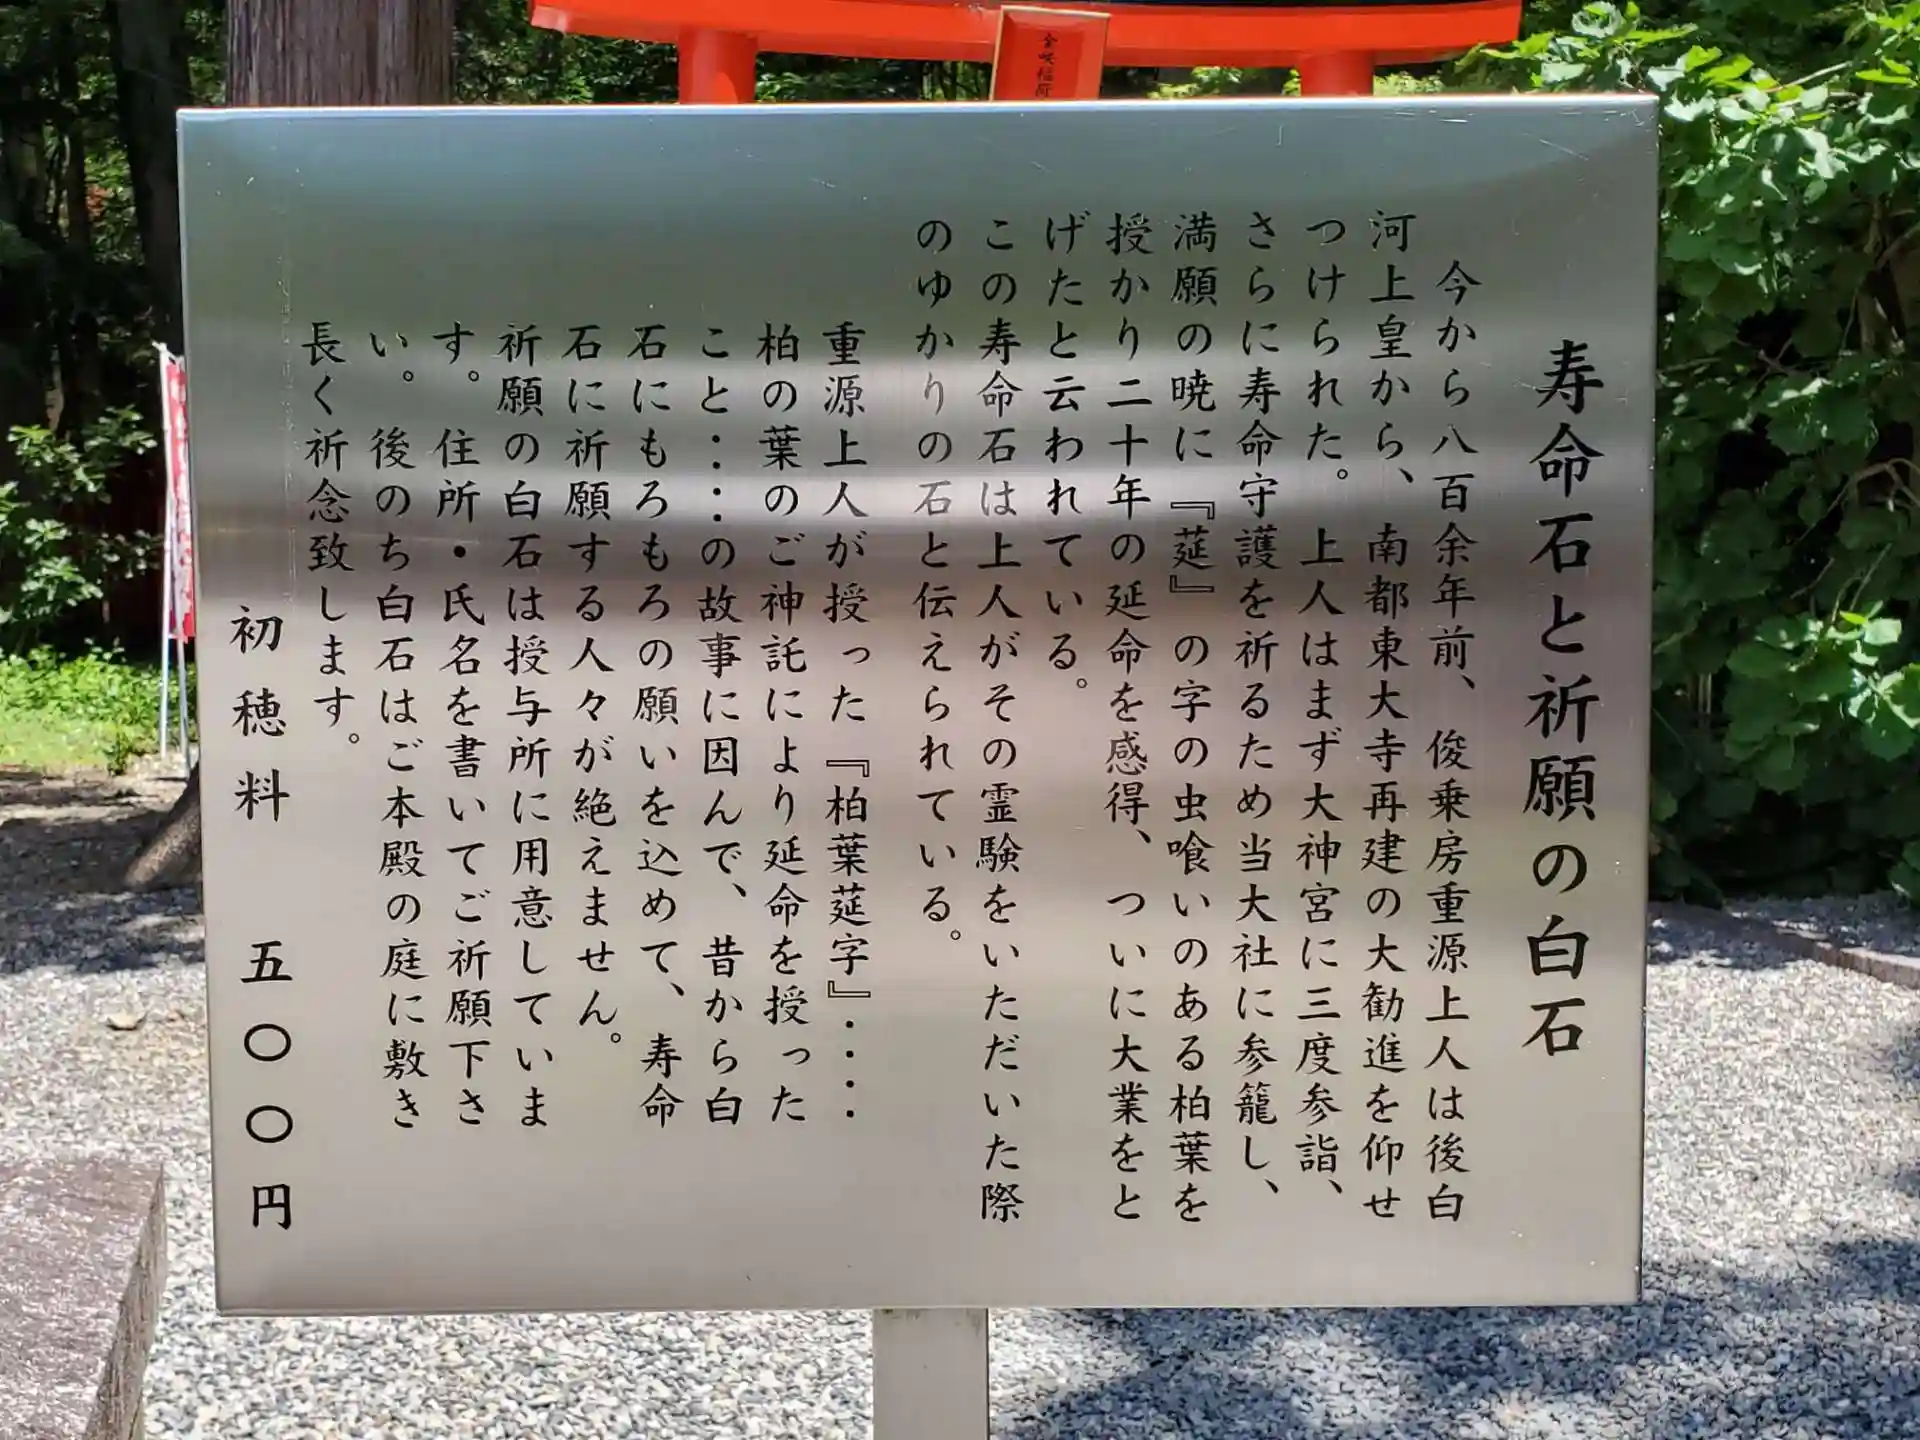 金咲稲荷
寿命石と祈願の白石
今から八百余年前、俊乗房重源上人は後白
河上皇から、南都東大寺再建の大勧進を仰せ
つけられた。上人はまず大神宮に三度参詣、
さらに寿命守護を祈るため当大社に参籠し、
満願の暁に『莚』の字の虫喰いのある柏葉を
授かり二十年の延命を感得、ついに大業をと
げたと云われている。
この寿命石は上人がその霊験をいただいた際
のゆかりの石と伝えられている。
重源上人が授った『柏葉莚字』・・・
柏の葉のご神託により延命を授った
こと・・・の故事に因んで、昔から白
石にもろもろの願いを込めて、寿命
石に祈願する人々が絶えません。
祈願の白石は授与所に用意していま
す。住所・氏名を書いてご祈願下さ
い。後のち白石はご本殿の庭に敷き
長く祈念致します。
初穂料 五〇〇円